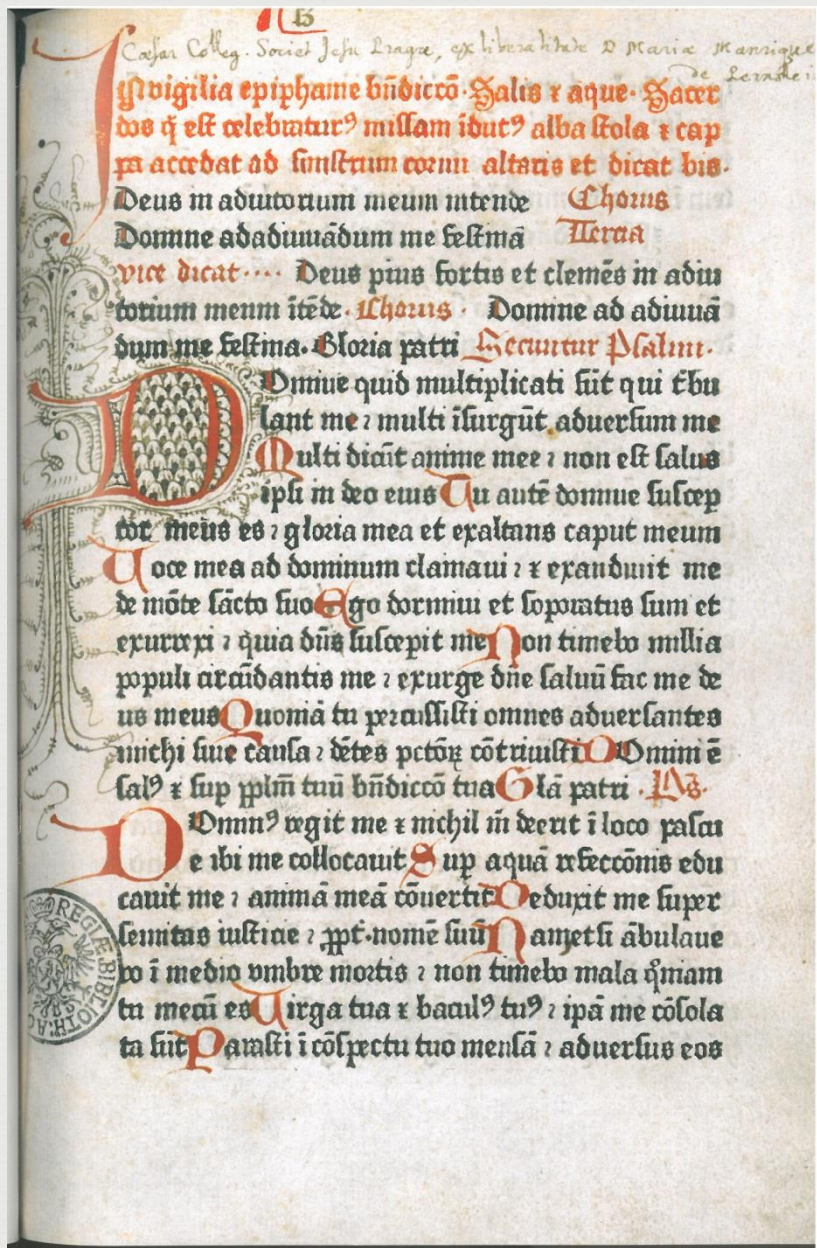 13
Cæsar Colleg. Societ Jesu Pragæ, ex liberalitate D Mariæ Manrique
de Pernstein
In vigilia epiphanie bn̄diccō· Salis ⁊ aque· Sacer
dos q̄ est celebraturꝰ missam īdutꝰ alba stola ⁊ cap
pa accedat ad sinistrum cornu altaris et dicat bis·
Deus in adiutorium meum intende Chorus
Domine ad adiuuādum me festinā Tercia
vice dicat···· Deus pius fortis et clemēs in adiu
torium meum ītēde· Chorus· Domine ad adiuuā
dum me festina· Gloria patri Secuntur Psalmi·
DOmine quid multiplicati sūt qui t̄bu
lant me ⁊ multi īsurgūt aduersum me
Multi dicūt anime mee ⁊ non est salus
ipsi in deo eius Tu autē domine suscep
tor meus es ⁊ gloria mea et exaltans caput meum
Uoce mea ad dominum clamaui ⁊ ⁊ exaudiuit me
de mōte sācto suo Ego dormiui et soporatus sum et
exurrexi ⁊ quia dn̄s suscepit me Non timebo millia
populi circūdantis me ⁊ exurge dn̄e saluū fac me de
us meus Quoniā tu percussisti omnes aduersantes
michi sine causa ⁊ dētes pctōꝝ cōtriuisti DOmini ē
salꝰ ⁊ sup̱ p̱plm̄ tuū bn̄diccō tua Glā patri · Ps̄·
DOminꝰ regit me ⁊ nichil m̄ deerit ī loco pascu
e ibi me collocauit Sup̱ aquā refeccōnis edu
cauit me ⁊ animā meā cōuertit Deduxit me super
semitas iusticie ⁊ p̱pt̄·nomē suū Nam etsi ābulaue
ro ī medio vmbre mortis ⁊ non timebo mala qm̄iam
tu mecū es Uirga tua ⁊ baculꝰ tuꝰ ⁊ ipā me cōsola
ta sūt Parasti ī cōspectu tuo mensā ⁊ aduersus eos
REGIÆ BIBLIOTH: AC